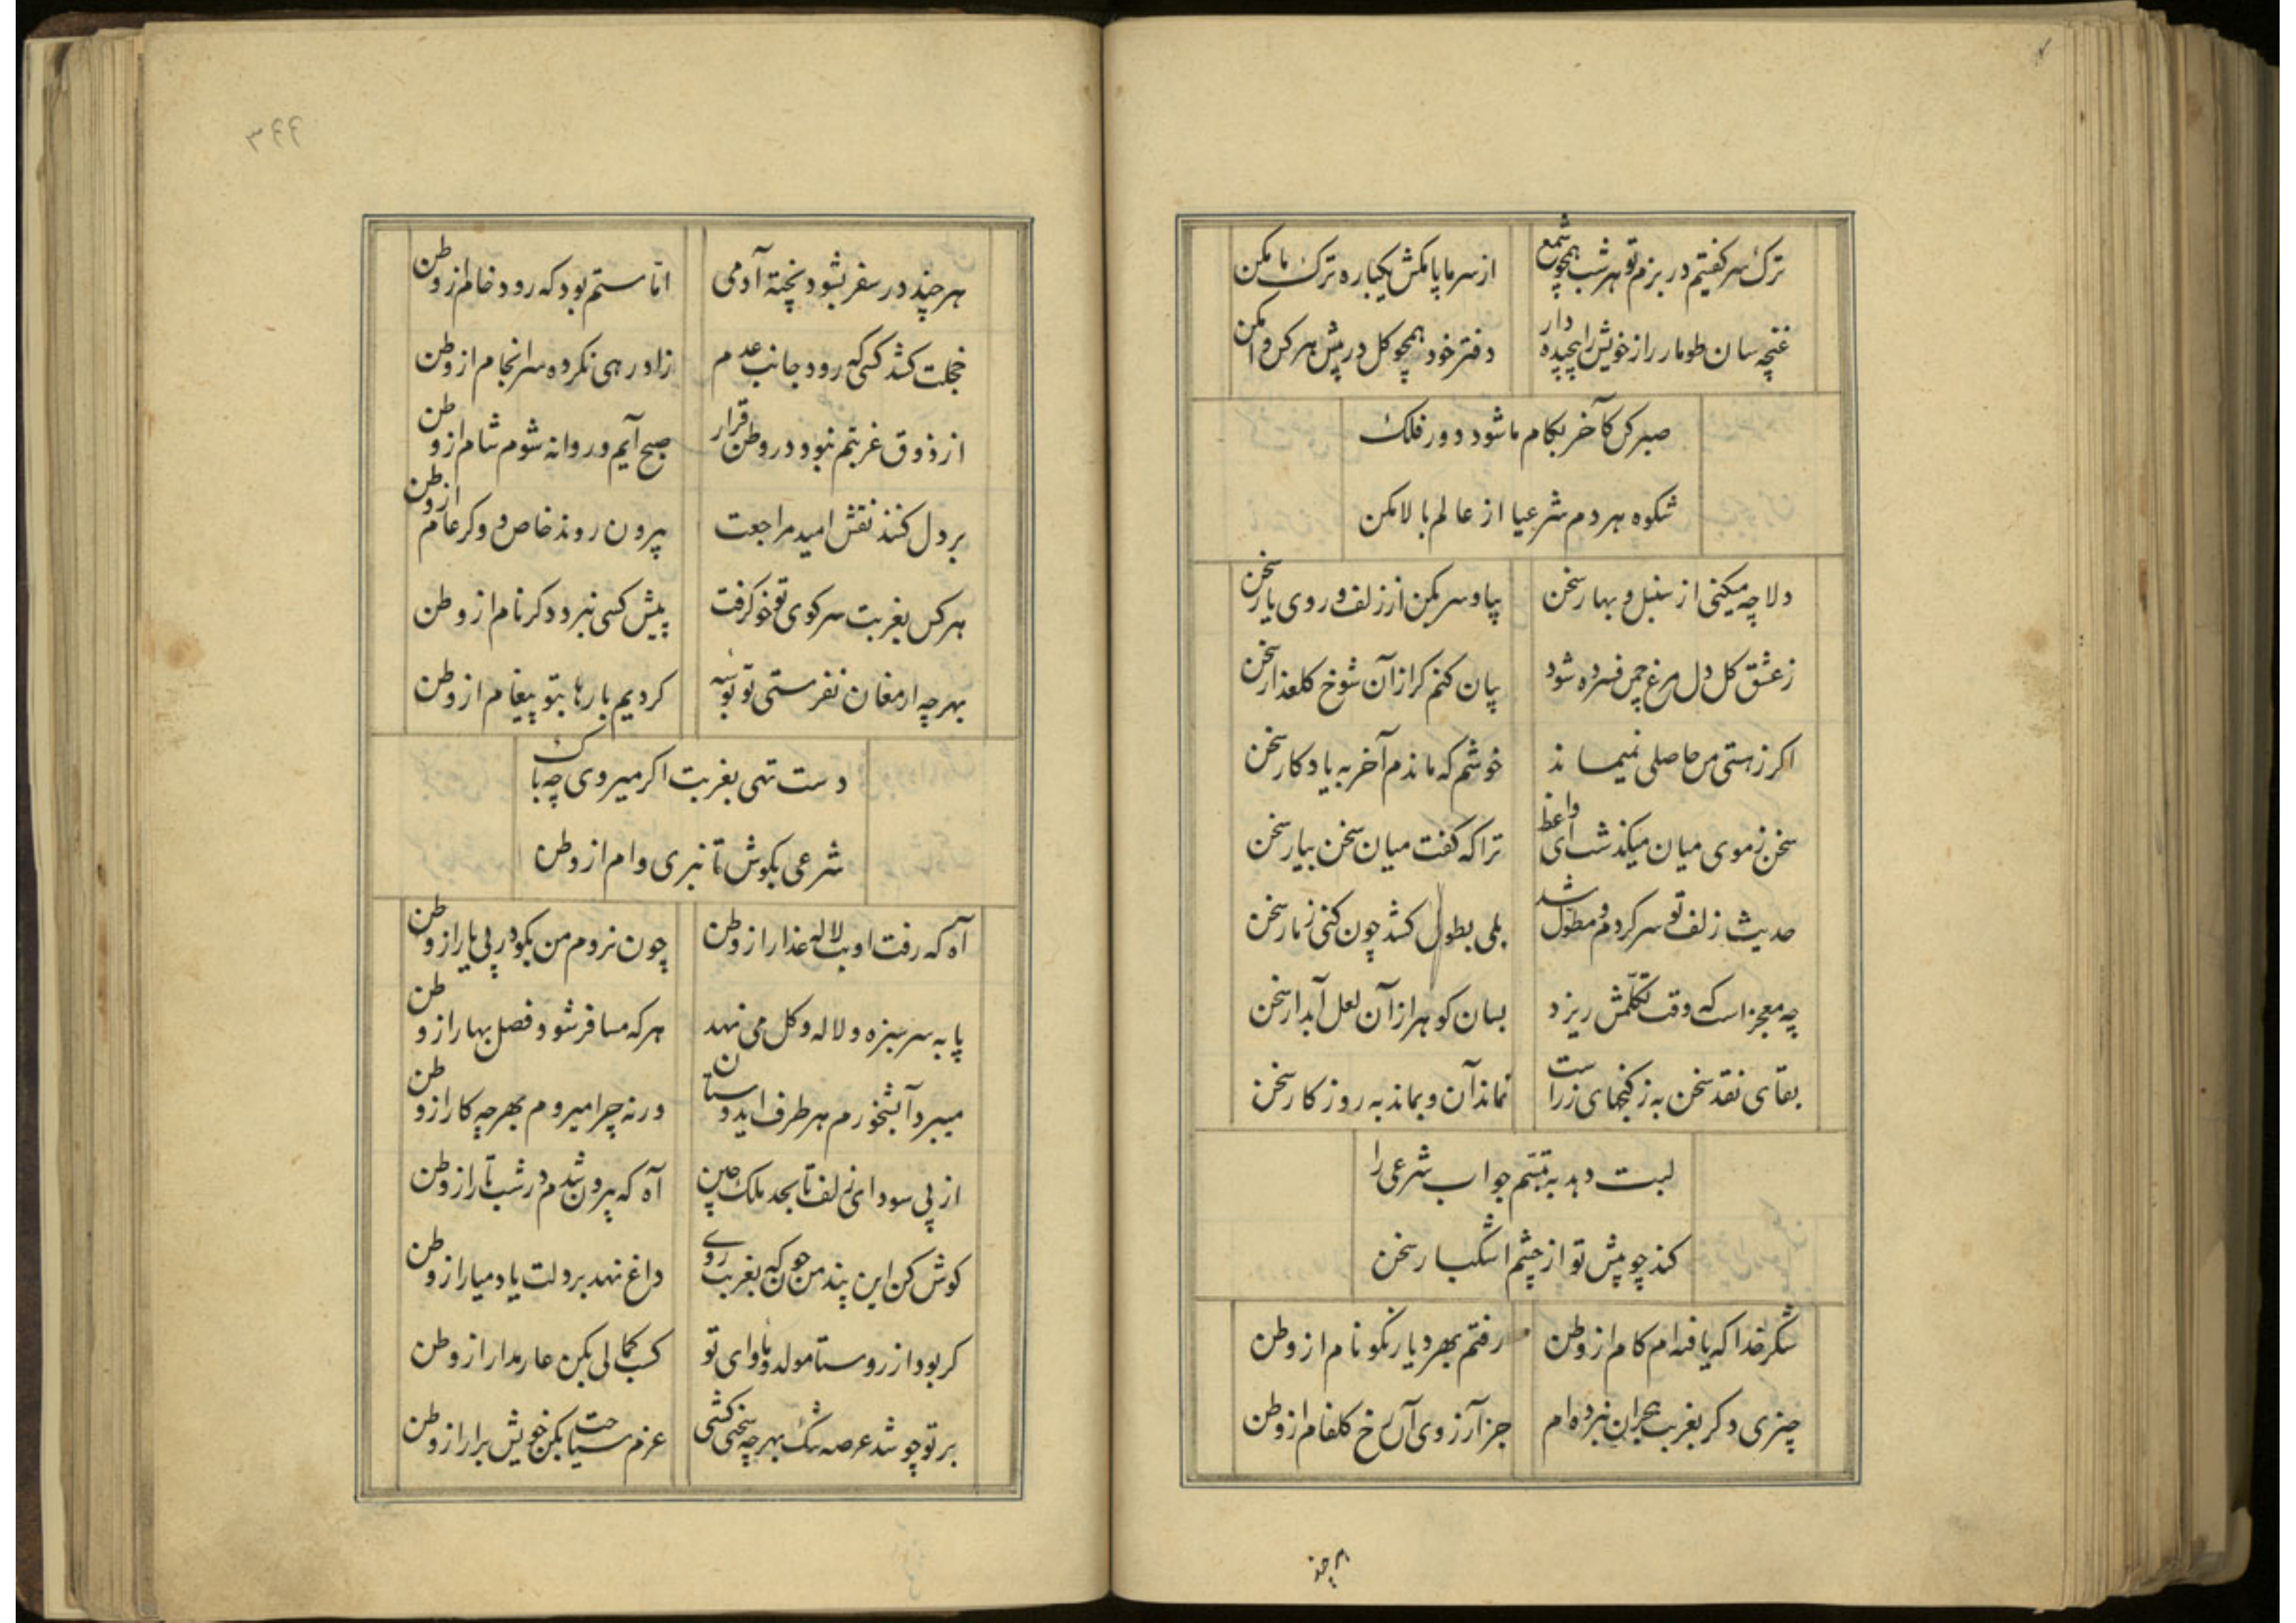 ترک سر کفتیم در بزم تو هر شب همچو شمع از سر ما پا مکش یکباره ترک ما مکن
غنچه سان طومار راز خویش را پیچیده دار دفتر خود همچو کل در پیش هر کس وا مکن
صبر کن کآخر بکام ما شود دور فلک
شکوه هر دم شرعیا از عالم بالا مکن
دلا چه میکنی از سنبل و بهار سخن بیا و سر بکن از زلف و روی یار سخن
ز عشق کل دل مرغ چمن فسرده شود بیان کنم کر از آن شوخ کلعذار سخن
اکر ز هستی من حاصلی نمیماند خوشم که ماندم آخر به یادکار سخن
سخن ز موی میان میکذشت ای واعظ ترا که کفت میان سخن بیار سخن
حدیث زلف تو سر کردم و مطول شد بلی بطول کشد چون کنی ز مار سخن
چه معجز است که وقت تکلمش ریزد بسان کوهر از آن لعل آبدار سخن
بقای نقد سخن به ز کنجهای زر است نماند آن و بماند به روزکار سخن
لبت دهد به تبسم جواب شرعی را
کند چو پیش تو از چشم اشکبار سخن
شکر خدا که یافته ام کام از وطن رفتم بهر دیار نکو نام از وطن
چیزی دکر بغربت هجران نبرده ام جز آرزوی آن رخ کلفام از وطن
هر چند
۳۶۶
هر چند در سفر بشود پخته آدمی اما ستم بود که رود خام از وطن
خجلت کشد کسی که رود جانب عدم زاد رهی نکرده سرانجام از وطن
از ذوق غربتم نبود در وطن قرار صبح آیم و روانه شوم شام از وطن
بر دل کنند نقش امید مراجعت بیرون روند خاص و کر عام از وطن
هر کس بغربت سر کوی تو خو کرفت پیش کسی نبرد دکر نام از وطن
بهر چه ارمغان نفرستی تو بوسه کردیم بارها بتو پیغام از وطن
دست تهی بغربت اکر میروی چه باک
شرعی بکوش تا نبری وام از وطن
آه که رفت او بت لاله عذار از وطن چون نروم من بکو در پی یار از وطن
پا به سر سبزه و لاله و کل می نهد هر که مسافر شود فصل بهار از وطن
میبرد آبشخورم هر طرف ای دوستان ورنه چرا میروم بهر چه کار از وطن
از پی سودای زلف تا بحد ملک چین آه که بیرون شدم در شب تار از وطن
کوش کن این پند من چون که بغربت روی داغ نهد بر دلت یاد میار از وطن
کر بود از روستا مولد و ماوای تو کسب کمالی بکن عار مدار از وطن
بر تو چو شد عرصه تنک بهر چه سختی کشی عزم سیاحت بکن خویش برار از وطن